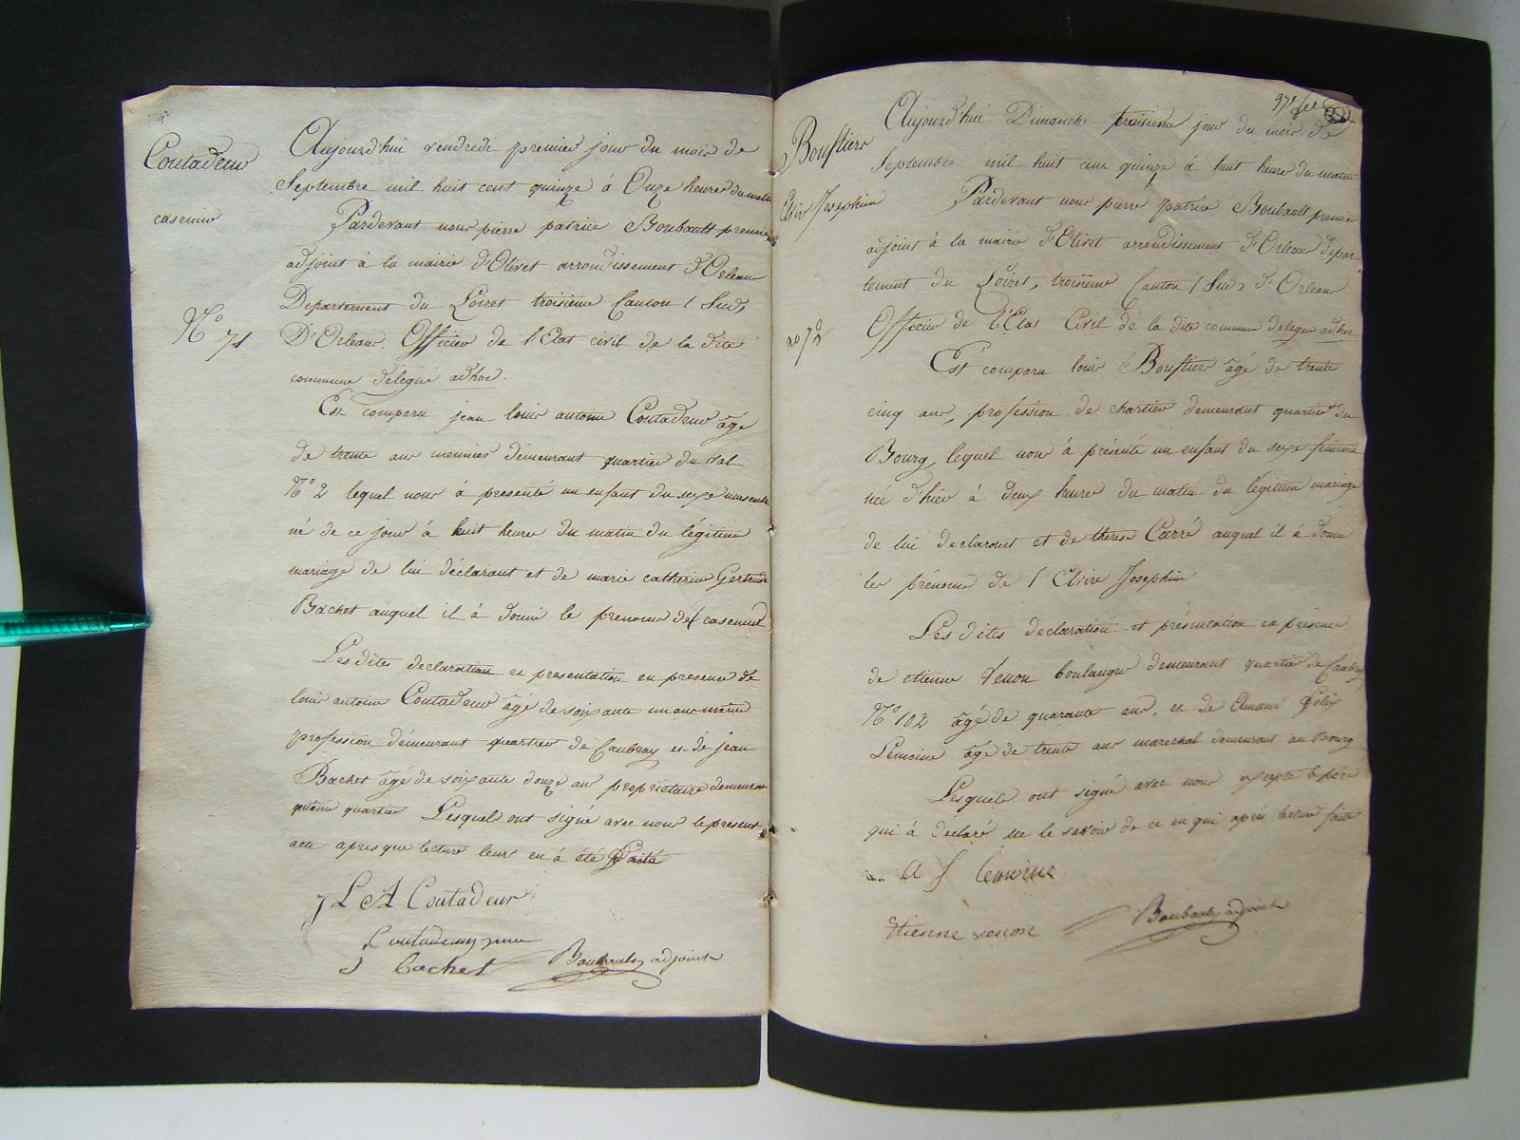 Coutadeur
casimir
N.o 71
Aujourd'hui vendredi premier jour du mois de
Septembre mil huit cent quinze à Onze heures du matin
Pardevant nous pierre patrice Boubault premier
adjoint à la mairie d'Olivet arrondissement d'Orleans
Departement du Loiret troisieme Canton (Sud)
D'Orleans. Officier de l'Etat civil de la dite
commune delegué adhoc.
Est comparu jean louis antoine Coutadeur âgé
de trente ans meunier demeurant quartier du Val
N.o 2 lequel nous à presenté un enfant du sexe masculin
né de ce jour à huit heure du matin du légitime
mariage de lui déclarant et de marie catherine Gertrude
Bachet auquel il à donné le prenoms de ( casimir
Les dites declaration et presentation en presence de
louis antoine Coutadeur âgé de soixante un ans meme
profession demeurant quartier de Caubray et de jean
Bachet âgé de soixante douze ans propriétaire demeurant
quartier Lesquels ont signé avec nous le present
acte apres que lecture leurs en à été faite
J L A Coutadeur
Coutadeur
J bachet Boubault adjoint
37e
Boustier
Josephine
no 72
Aujourd'hui Dimanche troisieme jour du mois de
Septembre mil huit cent quinze à huit heure du matin
Pardevant nous pierre patrice Boubault premier
adjoint à la mairie d'Olivet arrondissement d'Orleans depar-
tement du Loiret, troisieme Canton (Sud) d'Orleans
Officier de l'Etat Civil de la dite commune delegué adhoc
Est comparu louis Boustier âgé de trente
cinq ans, profession de chartier demeurant quartier du
Bourg, lequel nous à présenté un enfant du sexe feminin
née d'hier à deux heures du matin du légitime mariage
de lui declarant et de therese Carré auquel il à donné
les prénoms de ( Josephine
Les dites declaration et présentation en présence
de etienne Venon boulanger demeurant quartier de Caubray
N.o 102 âgé de quarante ans, et de Amant felix
Lemoine âgé de trente ans marechal demeurant au Bourg
Lesquels ont signé avec nous excepté le père
qui à declaré ne le savoir de ce enqui après lecture faite
A f lemoine
Etienne venon Boubault adjoint